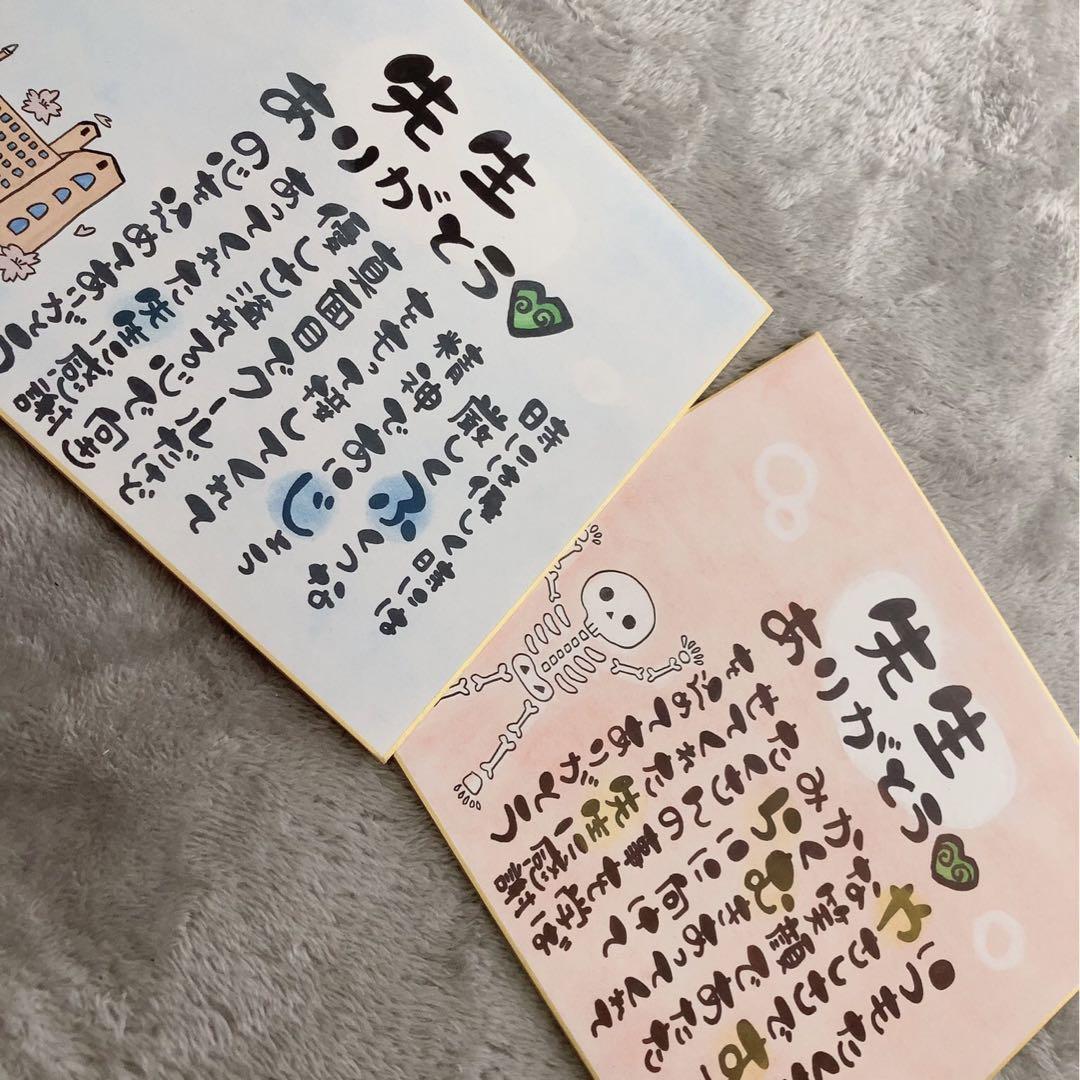 先生
ありがとう
時には優しく時には
厳しくふくつな
精神であいじょう
をもって接してくれて
真面目でクールだけど
優しさ溢れる心で向き
あってくれた先生に感謝
の心を込めてありがとう
先生
ありがとう
いつもたく
やさしさです
笑顔であたた
きあってくれて
たくさんの事を学ば
せてくれた先生に感謝
を込めてありがとう